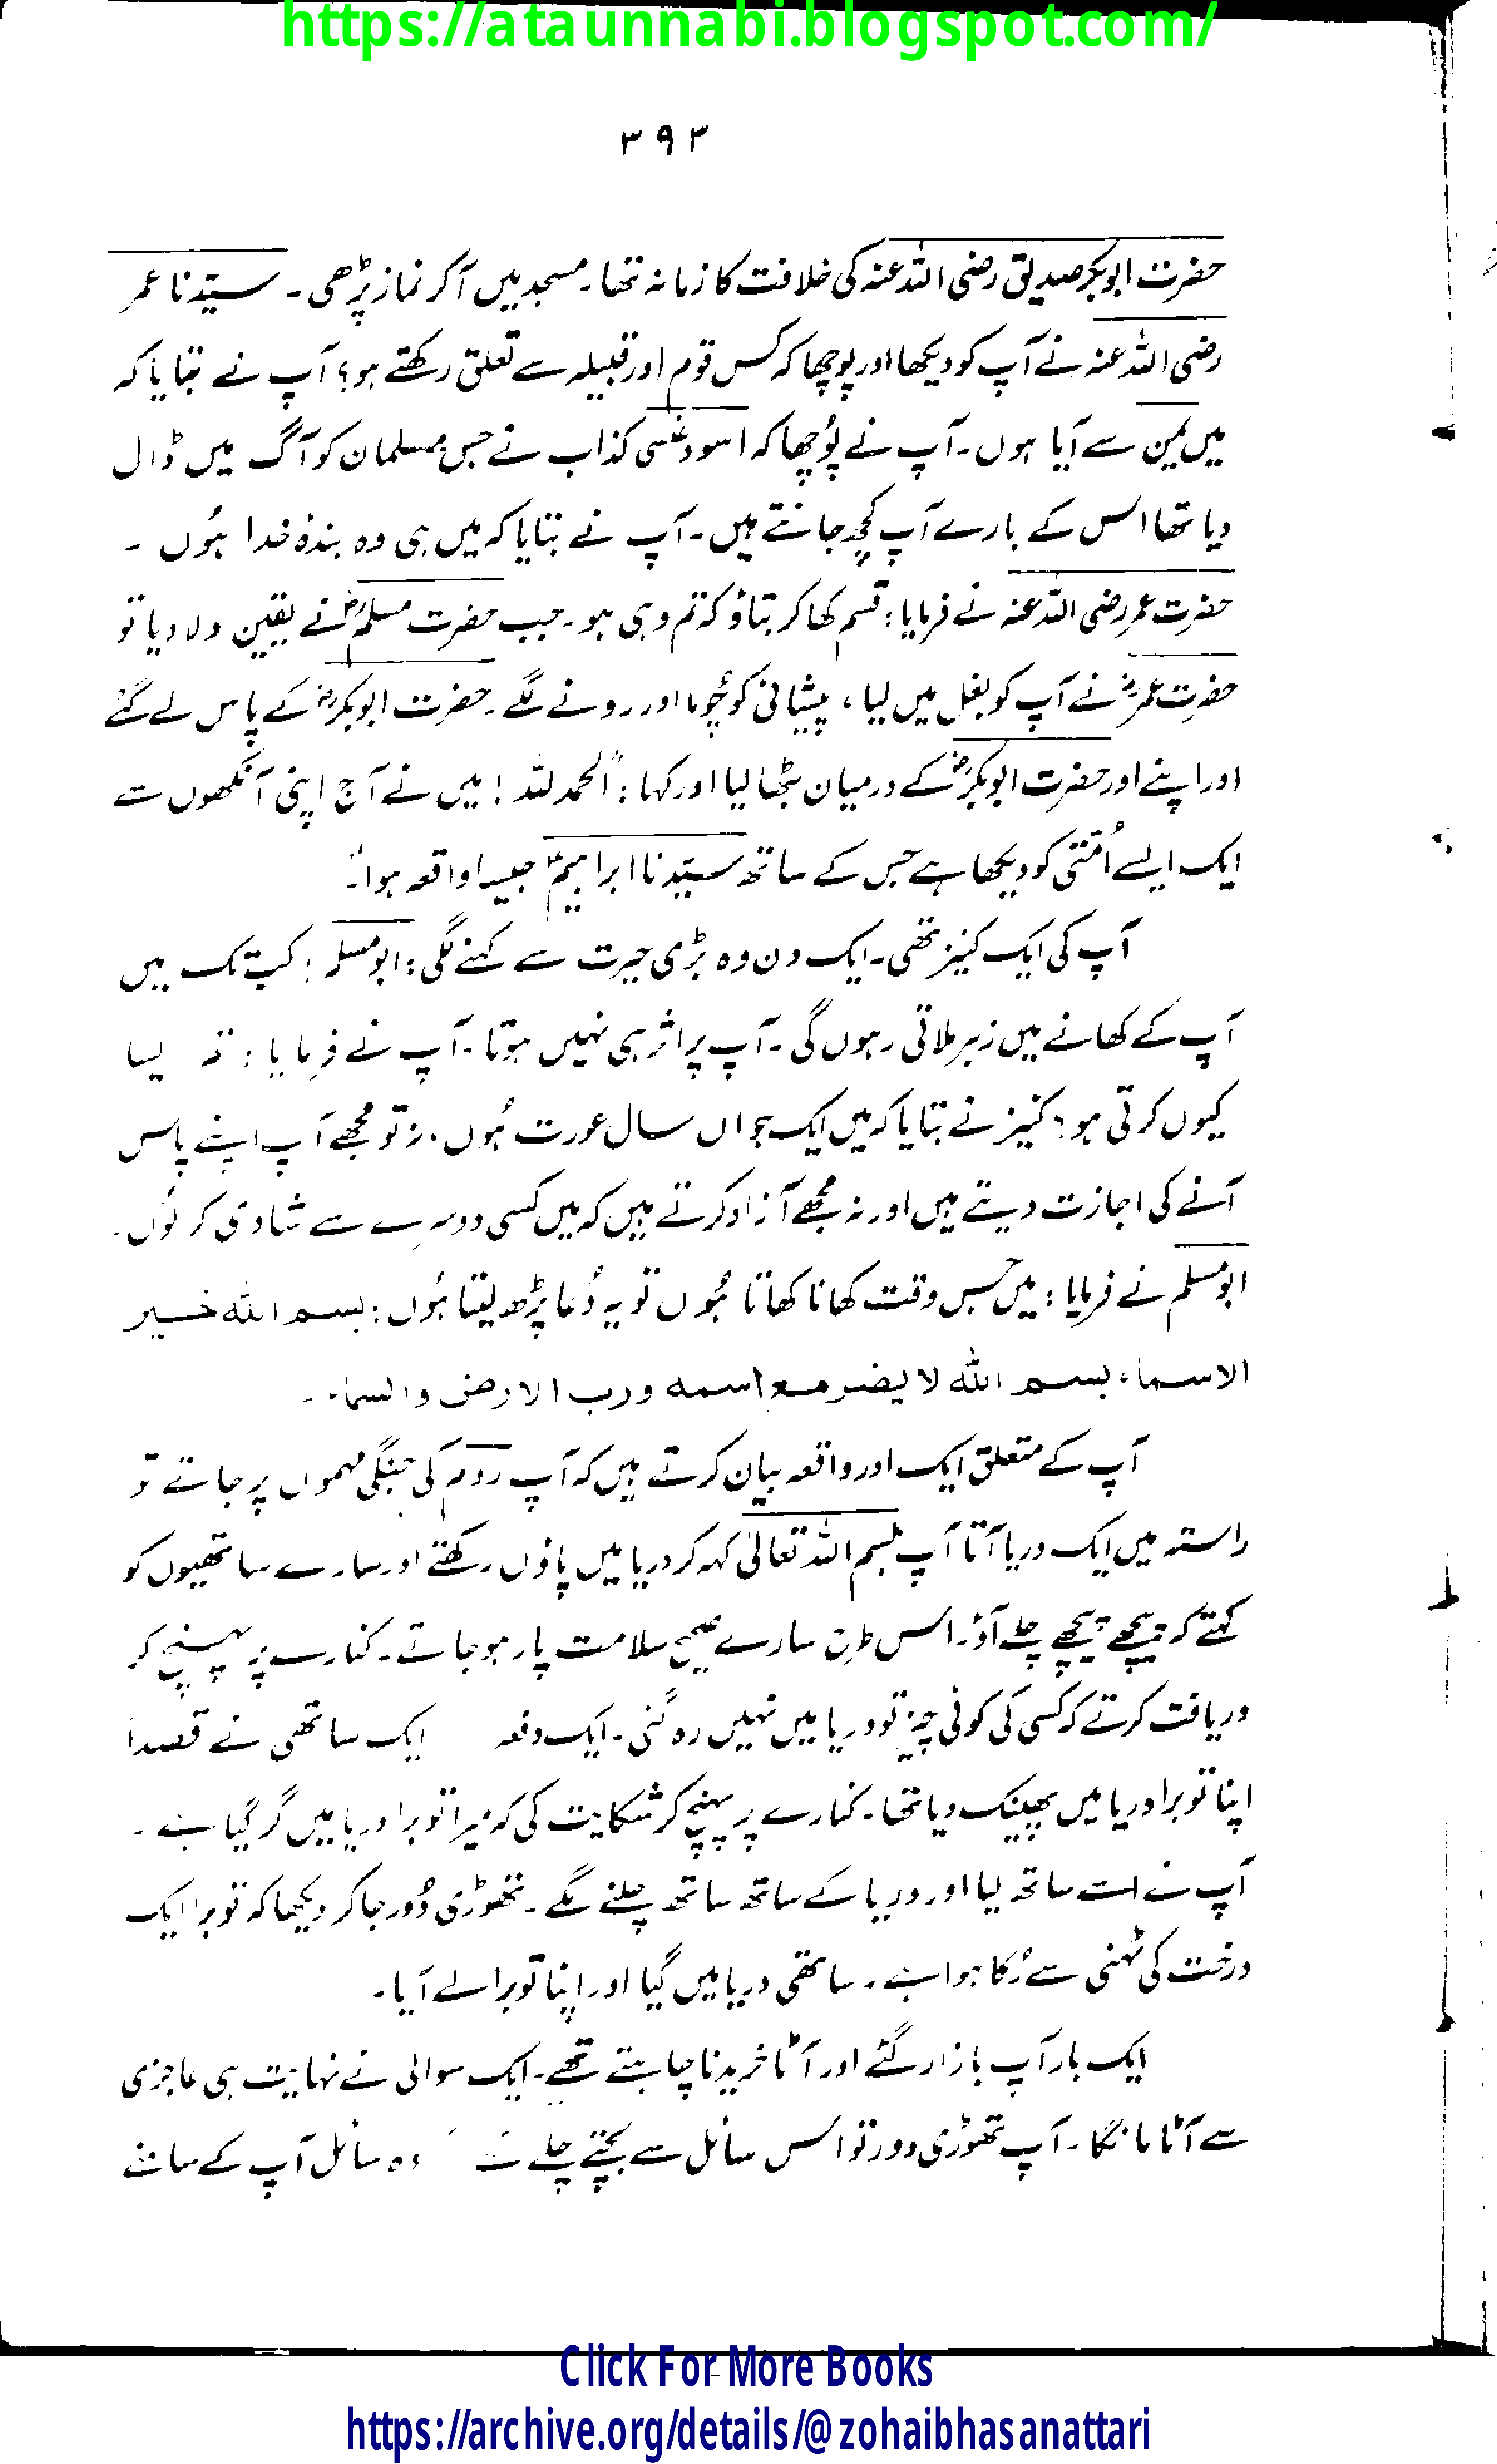 https://ataunnabi.blogspot.com/
۳۹۳
حضرت ابوبکر صدیق رضی اللہ عنہ کی خلافت کا زمانہ تھا۔ مسجد میں آکر نماز پڑھی۔ سیّدنا عمر
رضی اللہ عنہ نے آپ کو دیکھا اور پوچھا کہ کس قوم اور قبیلہ سے تعلق رکھتے ہو؟ آپ نے بتایا کہ
میں یمن سے آیا ہوں۔ آپ نے پُوچھا کہ اسود عنسی کذاب نے جس مسلمان کو آگ میں ڈال
دیا تھا اس کے بارے آپ کچھ جانتے ہیں۔ آپ نے بتایا کہ میں ہی وہ بندۂ خدا ہُوں ۔
حضرت عمر رضی اللہ عنہ نے فرمایا: قسم کھا کر بتاؤ کہ تم وہی ہو۔ جب حضرت مسلمؓ نے یقین دلا دیا تو
حضرت عمرؓ نے آپ کو بغل میں لیا، پیشانی کو چُوما اور رونے لگے۔ حضرت ابوبکرؓ کے پاس لے گئے
اور اپنے اور حضرت ابوبکرؓ کے درمیان بٹھا لیا اور کہا: "الحمد للہ! میں نے آج اپنی آنکھوں سے
ایک ایسے اُمّتی کو دیکھا ہے جس کے ساتھ سیّدنا ابراہیمؑ جیسا واقعہ ہوا"۔
آپ کی ایک کنیز تھی۔ ایک دن وہ بڑی حیرت سے کہنے لگی: ابومسلم! کب تک میں
آپ کے کھانے میں زہر ملاتی رہوں گی۔ آپ پر اثر ہی نہیں ہوتا۔ آپ نے فرمایا:
کیوں کرتی ہو؟ کنیز نے بتایا کہ میں ایک جواں سال عورت ہُوں۔ نہ تو مجھے آپ اپنے پاس
آنے کی اجازت دیتے ہیں اور نہ مجھے آزاد کرتے ہیں کہ میں کسی دوسرے سے شادی کر لُوں۔
ابومسلم نے فرمایا: میں جس وقت کھانا کھاتا ہُوں تو یہ دُعا پڑھ لیتا ہُوں: بسم اللہ خیر
الاسماء بسم اللہ لا یضر مع اسمہ ورب الارض والسماء۔
آپ کے متعلق ایک اور واقعہ بیان کرتے ہیں کہ آپ روم کی جنگی مہموں پر جاتے تو
راستہ میں ایک دریا آتا آپ بسم اللہ تعالیٰ کہہ کر دریا میں پاؤں رکھتے اور سارے ساتھیوں کو
کہتے کہ پیچھے پیچھے چلے آؤ۔ اس طرح سارے صحیح سلامت پار ہو جاتے۔ کنارے پر پہنچ کر
دریافت کرتے کہ کسی کی کوئی چیز تو دریا میں نہیں رہ گئی۔ ایک دفعہ ایک ساتھی نے قصداً
اپنا توبرا دریا میں پھینک دیا تھا۔ کنارے پر پہنچ کر شکایت کی کہ میرا توبرا دریا میں گر گیا ہے۔
آپ نے اسے ساتھ لیا اور دریا کے ساتھ ساتھ چلنے لگے۔ تھوڑی دُور جا کر دیکھا کہ توبرا ایک
درخت کی ٹہنی سے رُکا ہوا ہے۔ ساتھی دریا میں گیا اور اپنا توبرا لے آیا۔
ایک بار آپ بازار گئے اور آٹا خریدنا چاہتے تھے۔ ایک سوالی نے نہایت ہی عاجزی
سے آٹا مانگا۔ آپ تھوڑی دور تو اس سائل سے بچتے چلے وہ سائل آپ کے سامنے
Click For More Books
https://archive.org/details/@zohaibhasanattari